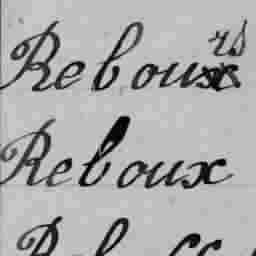 Rebours
Reboux